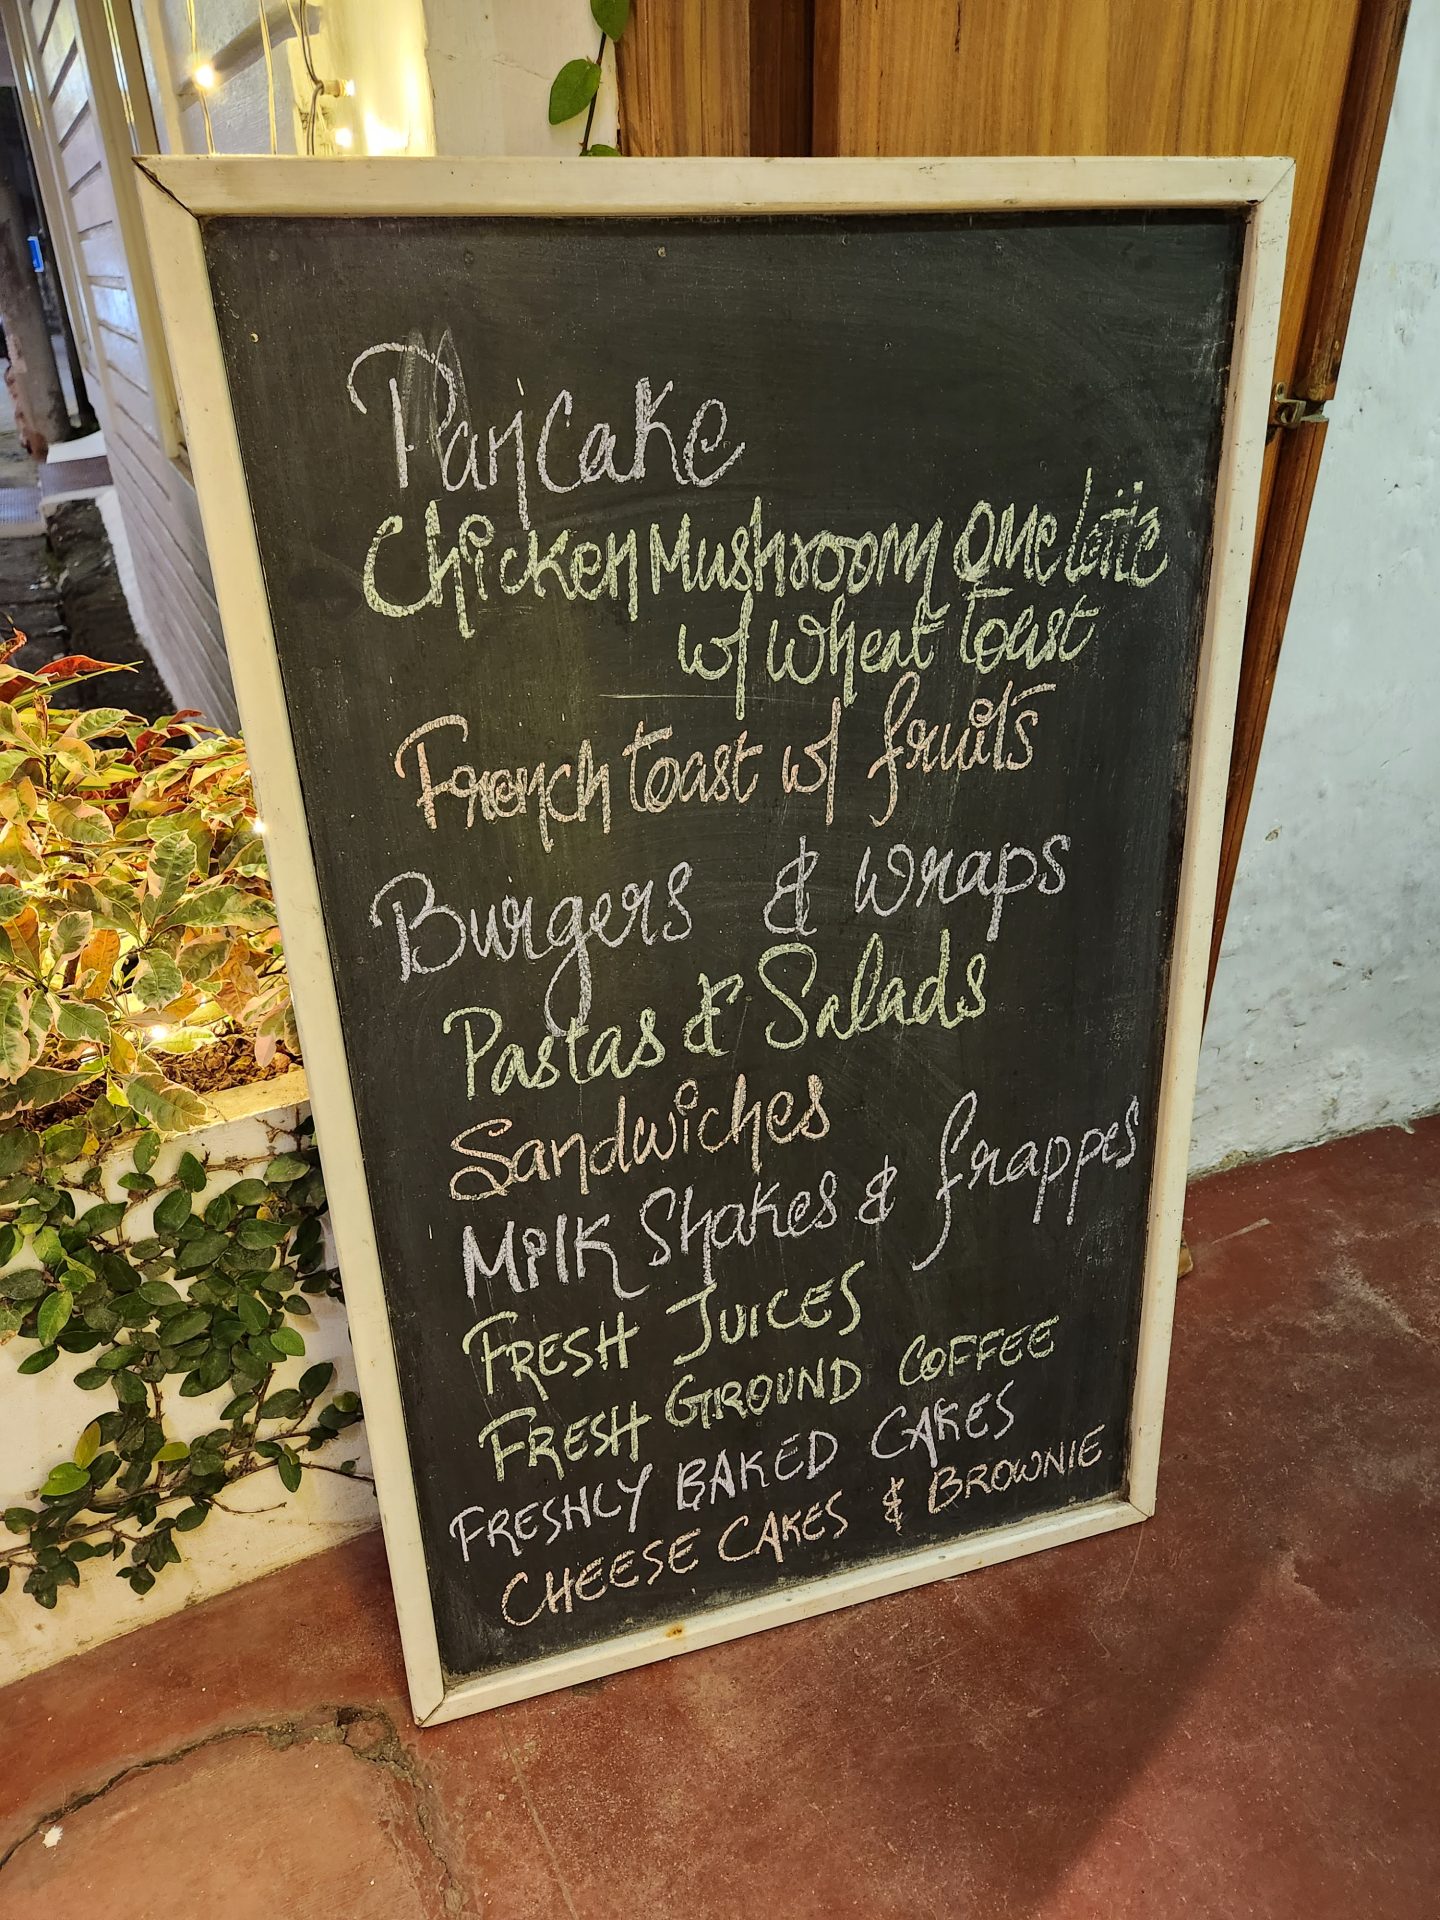 Pancake
Chicken Mushroom Omelette
w/ wheat Toast
French toast w/ fruits
Burgers & wraps
Pastas & Salads
Sandwiches
Milk Shakes & frappes
FRESH JUICES
FRESH GROUND COFFEE
FRESHLY BAKED CAKES
CHEESE CAKES & BROWNIE